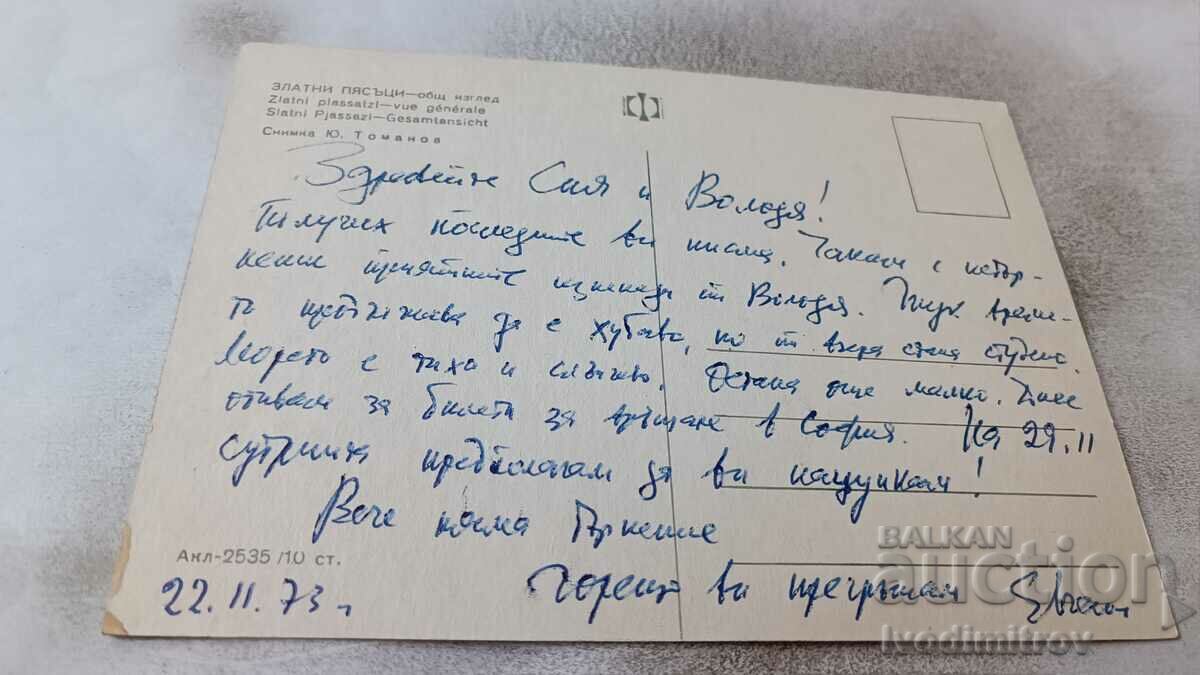 ЗЛАТНИ ПЯСЪЦИ—общ изглед
Zlatni plassatzi—vue générale
Slatni Pjassazi—Gesamtansicht
Снимка Ю. Томанов
Здравейте Сия и Володя!
Получих последните ви писма. Чакам с нетър-
пение приятните изненади от Володя. Тук време-
то продължава да е хубаво, но от вчера стана студено.
Морето е тихо и слънчево. Остана още малко. Днес
отивам за билети за връщане в София. На 29.II
сутринта предполагам да ви нацункам!
Вече няма търпение
Горещо ви прегръщам
Акл-2535/10 ст.
22.II.73 г
BALKAN
auction
Ivodimitrov